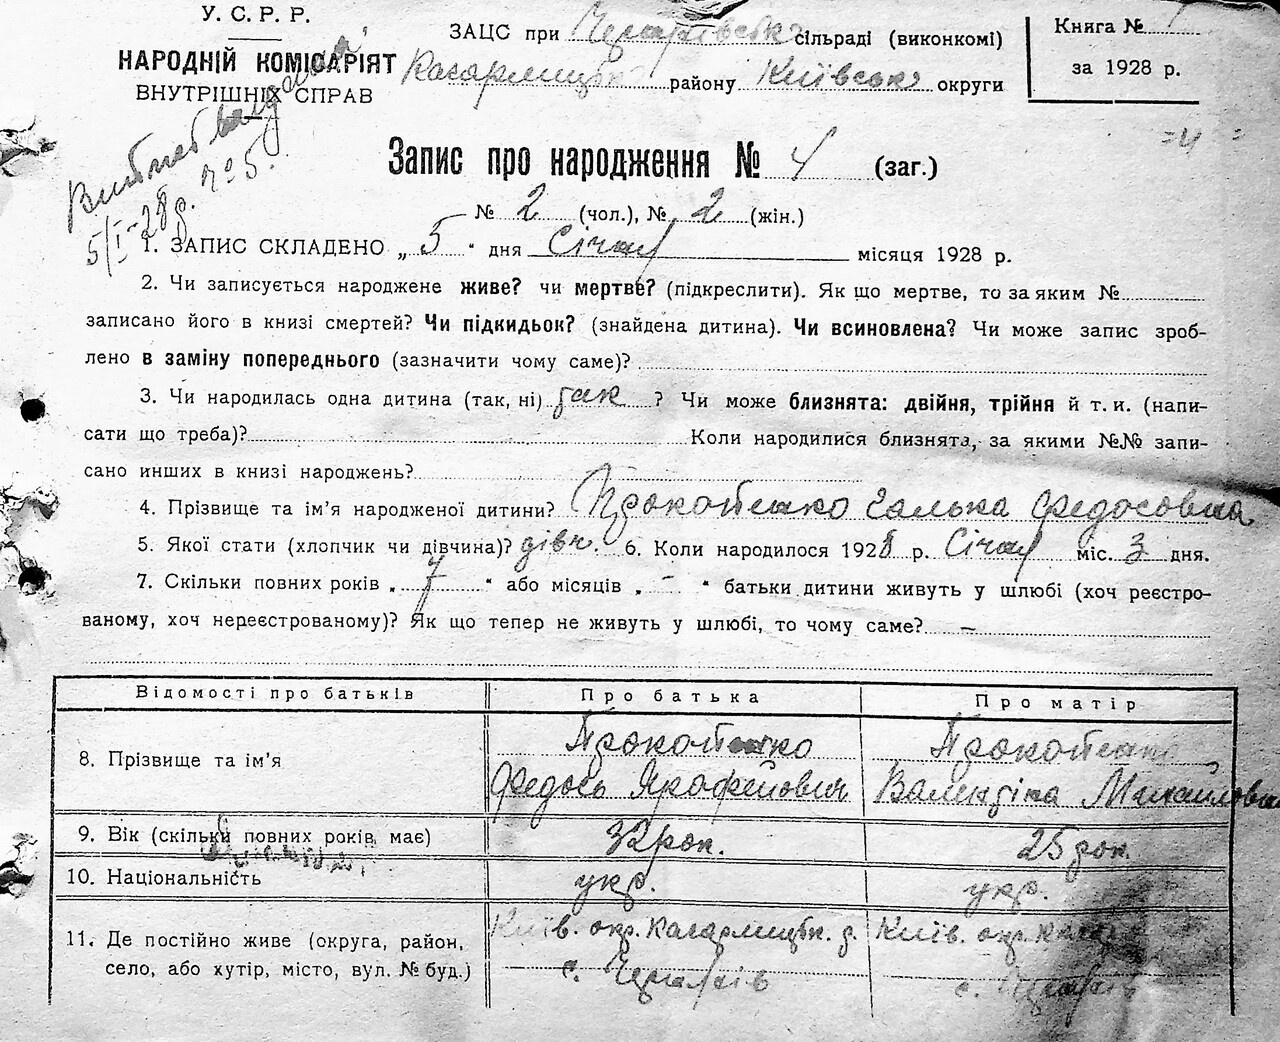 У. С. Р. Р.
НАРОДНІЙ КОМІСАРІЯТ
ВНУТРІШНІХ СПРАВ
ЗАЦС при сільраді (виконкомі)
Кагарлицьк району Київськ округи
Книга № 1
за 1928 р.
5/I-28 р. № 5.
Запис про народження № 4 (заг.)
№ 2 (чол.), № 2 (жін.)
1. ЗАПИС СКЛАДЕНО „ 5 “ дня Січня місяця 1928 р.
2. Чи записується народжене живе? чи мертве? (підкреслити). Як що мертве, то за яким №
записано його в книзі смертей? Чи підкидьок? (знайдена дитина). Чи всиновлена? Чи може запис зроб-
лено в заміну попереднього (зазначити чому саме)?
3. Чи народилась одна дитина (так, ні) так ? Чи може близнята: двійня, трійня й т. и. (напи-
сати що треба)? Коли народилися близнята, за якими №№ запи-
сано инших в книзі народжень?
4. Прізвище та ім’я народженої дитини? Прокопенко Галька Федосовна
5. Якої стати (хлопчик чи дівчина)? дівч. 6. Коли народилося 1928 р. Січня міс. 3 дня.
7. Скільки повних років „ 7 “ або місяців „ - “ батьки дитини живуть у шлюбі (хоч реєстро-
ваному, хоч нереєстрованому)? Як що тепер не живуть у шлюбі, то чому саме? –
Відомості про батьків Про батька Про матір
8. Прізвище та ім’я Прокопенко Прокопенко
Федось Валентіна Михайловна
9. Вік (скільки повних років має) 32 рок. 25 рок.
10. Національність укр. укр.
11. Де постійно живе (округа, район, Київ. окр. Кагарлицьк. р. Київ. окр.
село, або хутір, місто, вул. № буд.) с. с.